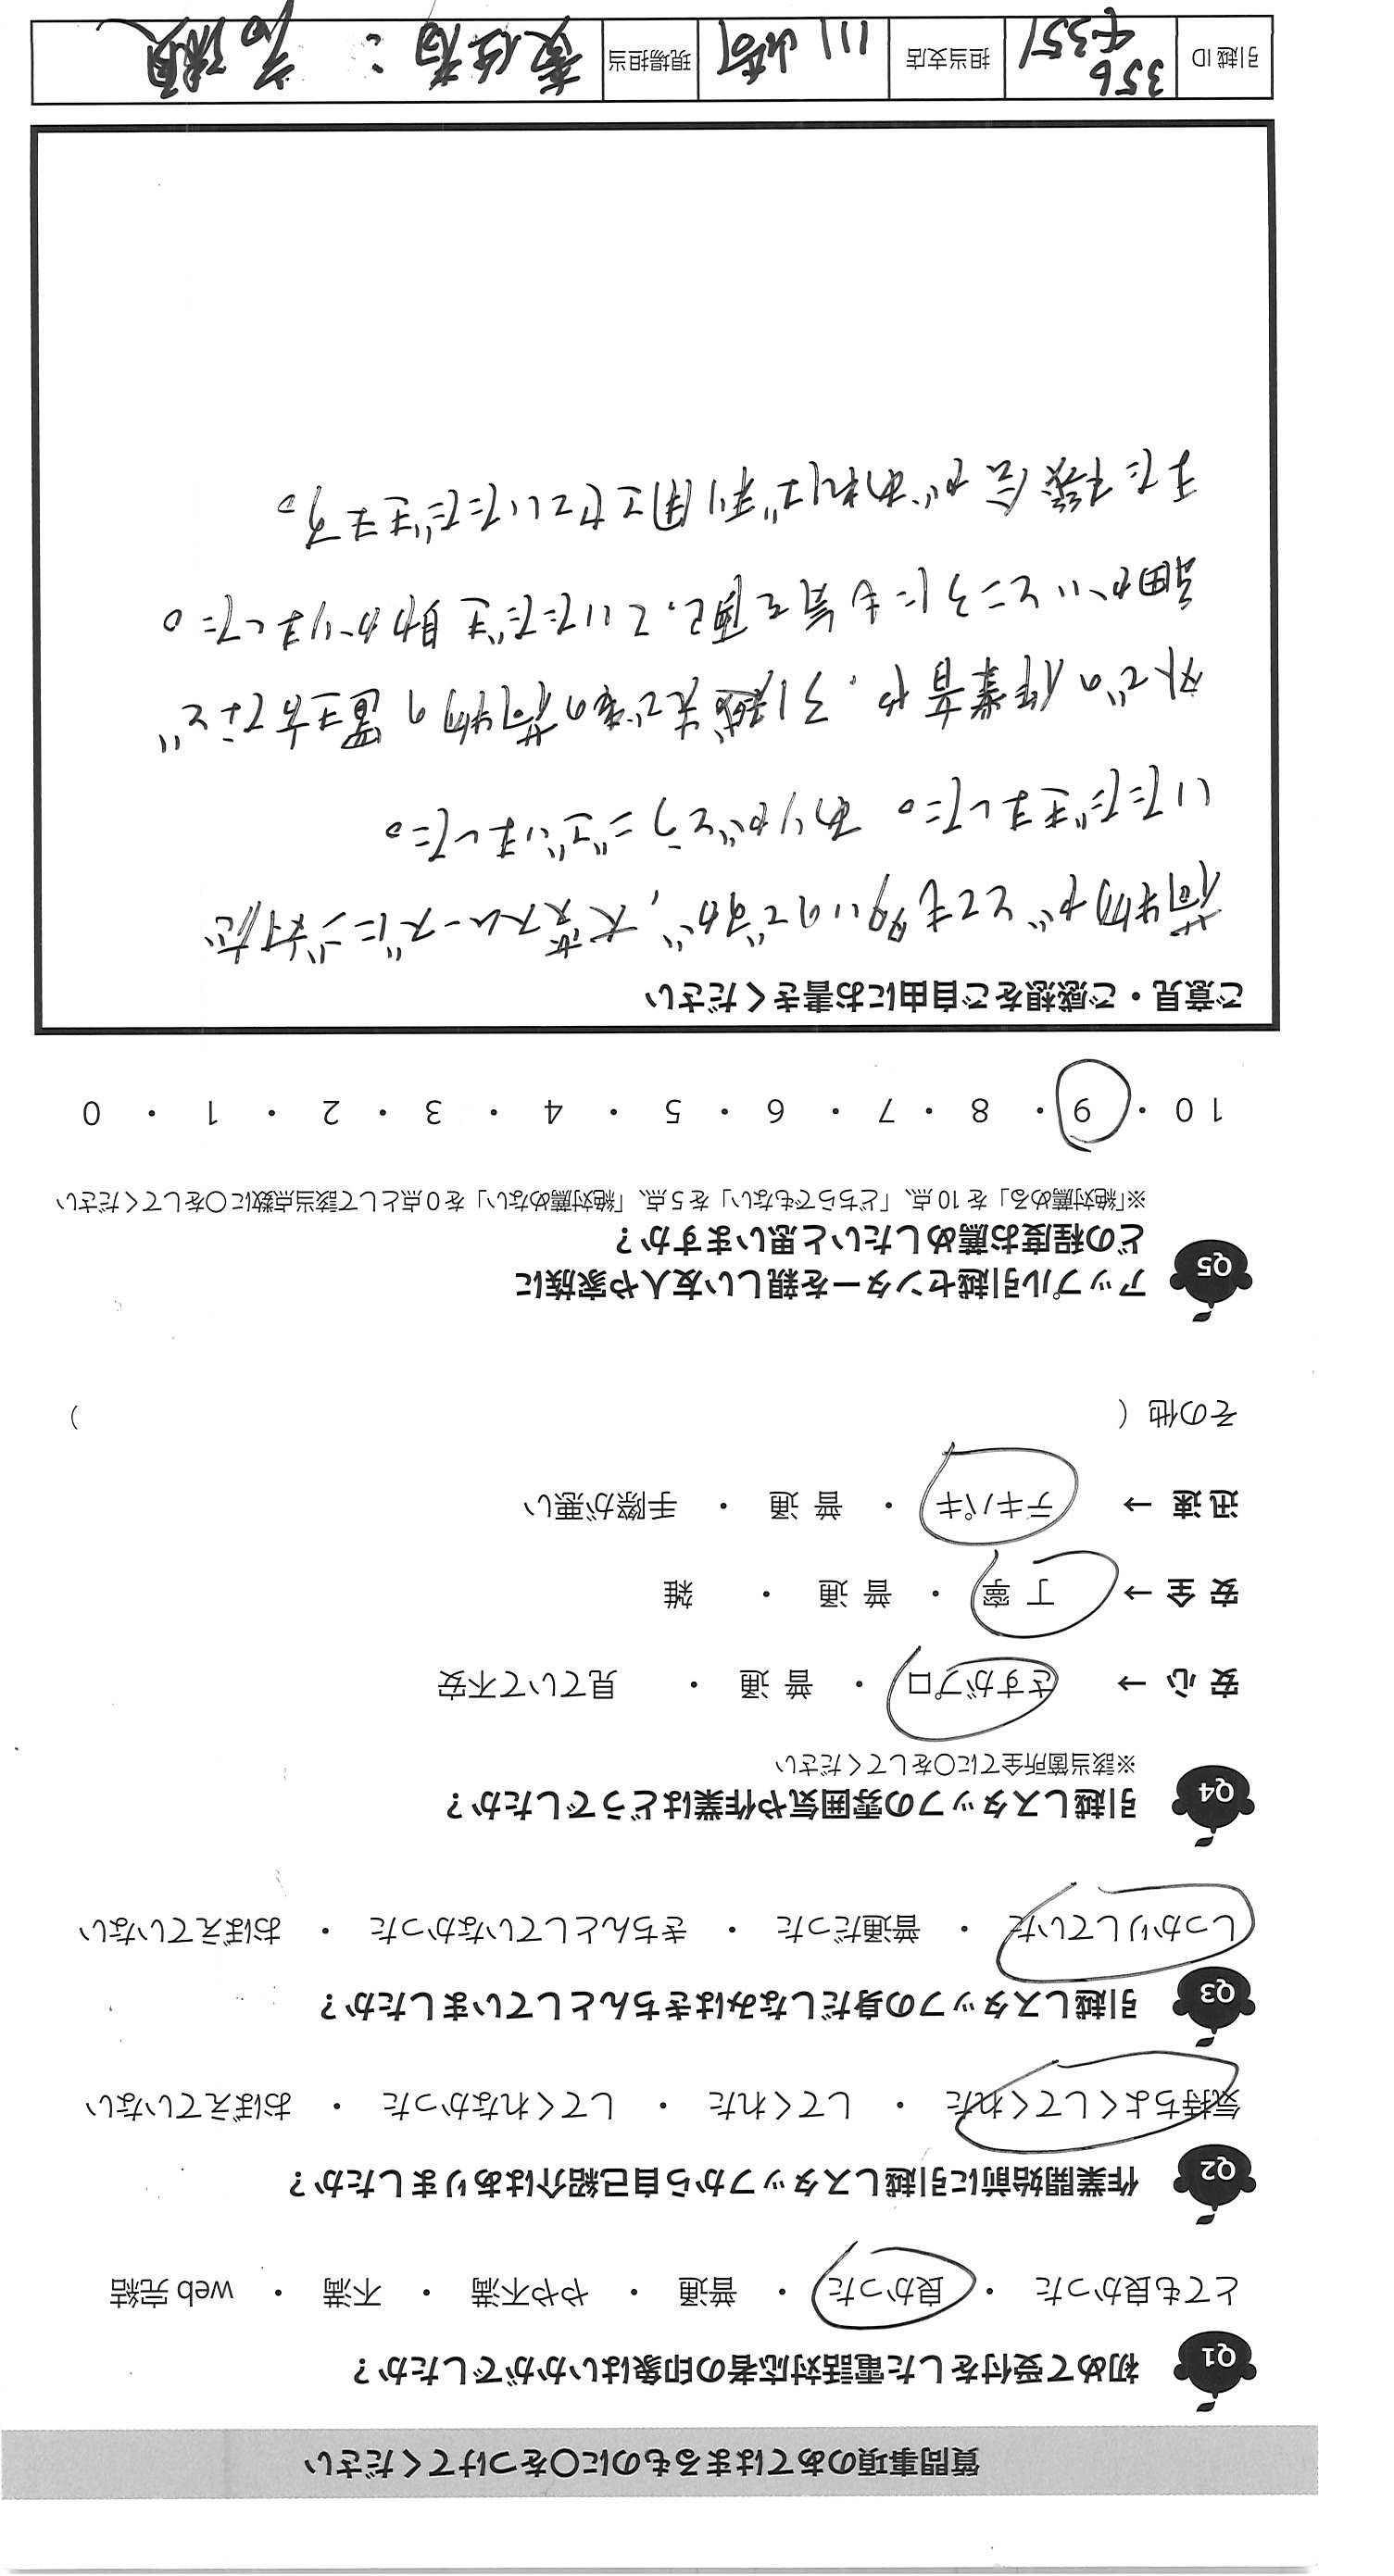 質問事項のあてはまるものに○をつけてください
Q1 初めて受付をした電話対応者の印象はいかがでしたか？
とても良かった ・ 良かった ・ 普通 ・ やや不満 ・ 不満 ・ web 完結
Q2 作業開始前に引越しスタッフから自己紹介はありましたか？
気持ちよくしてくれた ・ してくれた ・ してくれなかった ・ おぼえていない
Q3 引越しスタッフの身だしなみはきちんとしていましたか？
しっかりしていた ・ 普通だった ・ きちんとしていなかった ・ おぼえていない
Q4 引越しスタッフの雰囲気や作業はどうでしたか？
※該当箇所全てに○をしてください
安 心 → さすがプロ ・ 普 通 ・ 見ていて不安
安 全 → 丁 寧 ・ 普 通 ・ 雑
迅 速 → テキパキ ・ 普 通 ・ 手際が悪い
その他（ ）
Q5 アップル引越センターを親しい友人や家族に
どの程度お薦めしたいと思いますか？
※「絶対薦める」を 10 点、「どちらでもない」を 5 点、「絶対薦めない」を 0 点として該当点数に○をしてください
10 ・ 9 ・ 8 ・ 7 ・ 6 ・ 5 ・ 4 ・ 3 ・ 2 ・ 1 ・ 0
ご意見・ご感想をご自由にお書きください
荷物がとても多いのですが、大変スムーズにご対応
いただきました。ありがとうございました。
外での作業音や、引越先での荷物の置き方など
細かいところにも気を配っていただき助かりました。
また機会があれば利用させていただきます。
引越 ID 356 担当支店 川崎 現場担当 責任者：